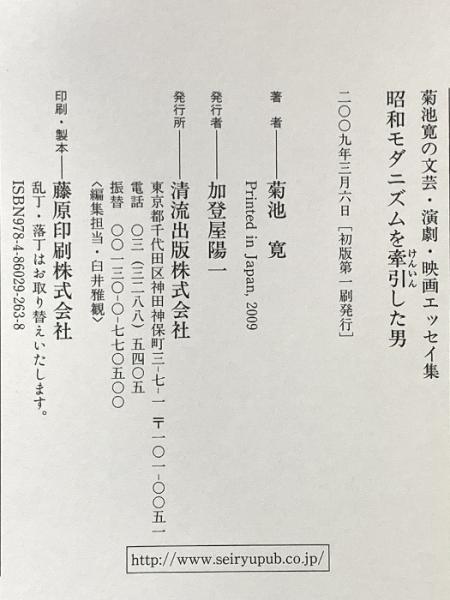 菊池寛の文芸・演劇・映画エッセイ集
昭和モダニズムを牽引した男
けんいん
二〇〇九年三月六日［初版第一刷発行］
著 者——菊池 寛
Printed in Japan, 2009
発行者——加登屋陽一
発行所——清流出版株式会社
東京都千代田区神田神保町三-七-一 〒一〇一-〇〇五一
電話 〇三（三二八八）五四〇五
振替 〇〇一三〇-〇-七七〇五〇〇
〈編集担当・臼井雅観〉
印刷・製本——藤原印刷株式会社
乱丁・落丁はお取り替えいたします。
ISBN978-4-86029-263-8
http://www.seiryupub.co.jp/